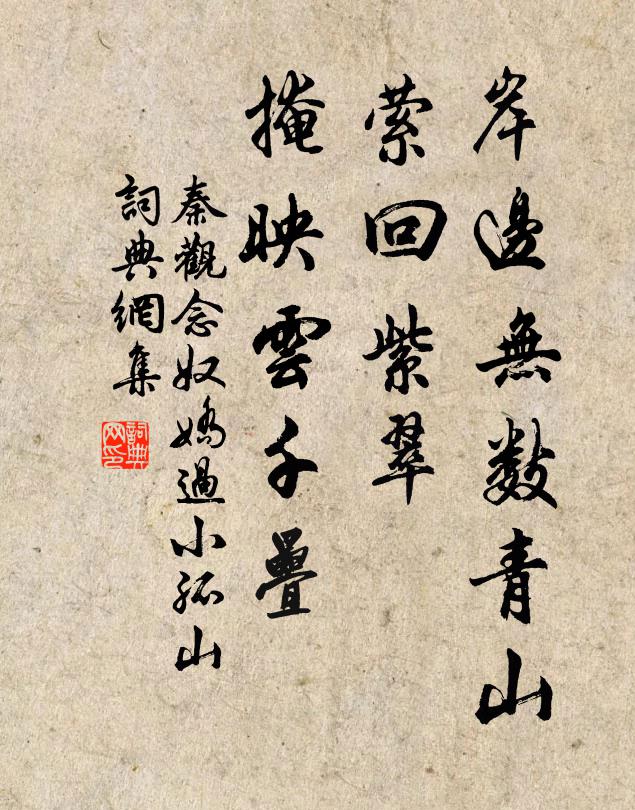 岸邊無數青山
萦回紫翠
掩映雲千疊
秦觀念奴嬌過小孤山
詞典網集
詞典
网印